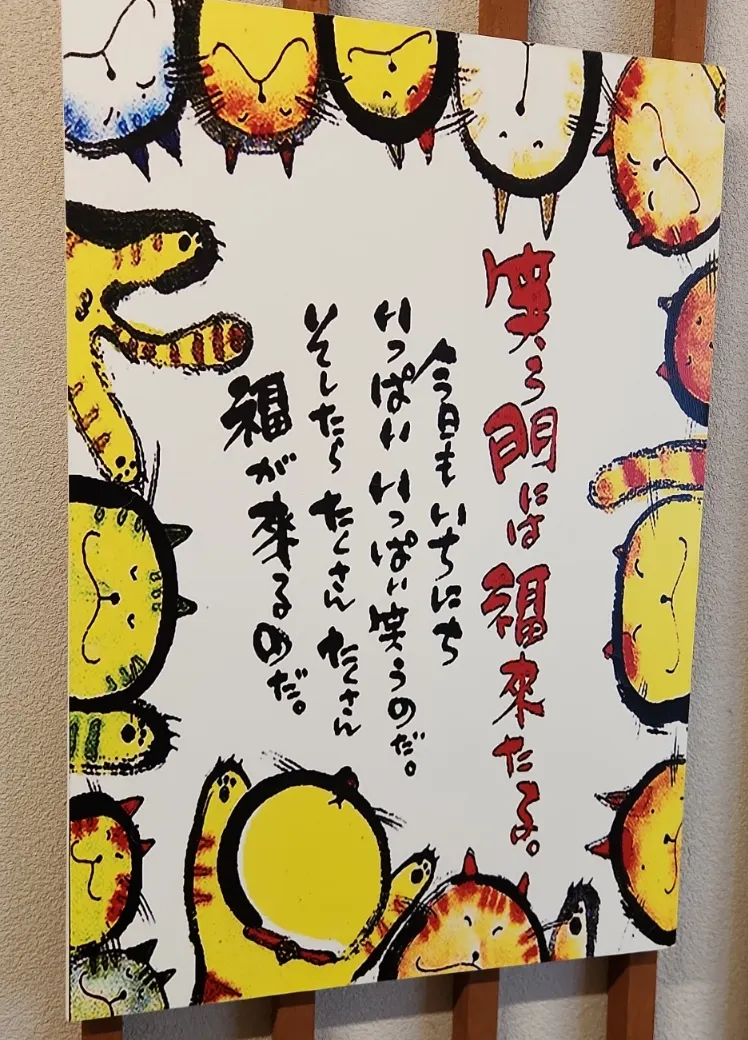 笑う門には福来たる。
今日もいちにち
いっぱいいっぱい笑うのだ。
そしたらたくさんたくさん
福が来るのだ。